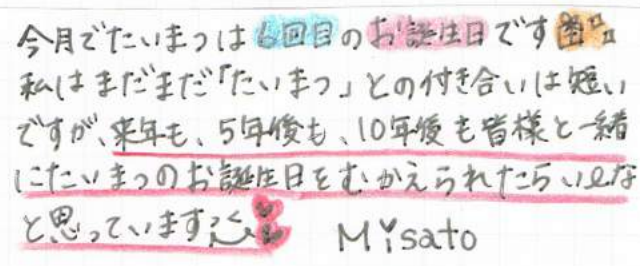 今月でたいまつは6回目のお誕生日です
私はまだまだ「たいまつ」との付き合いは短い
ですが、来年も、5年後も、10年後も皆様と一緒
にたいまつのお誕生日をむかえられたらいいな
と思っています
Misato